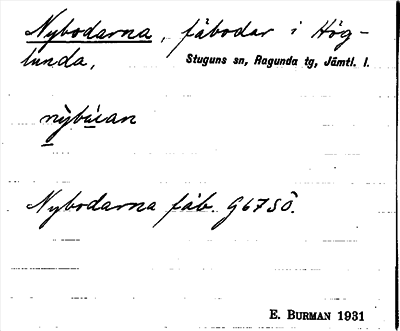 Nybodarna, fäbodar i Hög-
lunda, Stuguns sn, Ragunda tg, Jämtl. l.
nỳbúan
Nybodarna fäb. G67SÖ.
E. BURMAN 1931